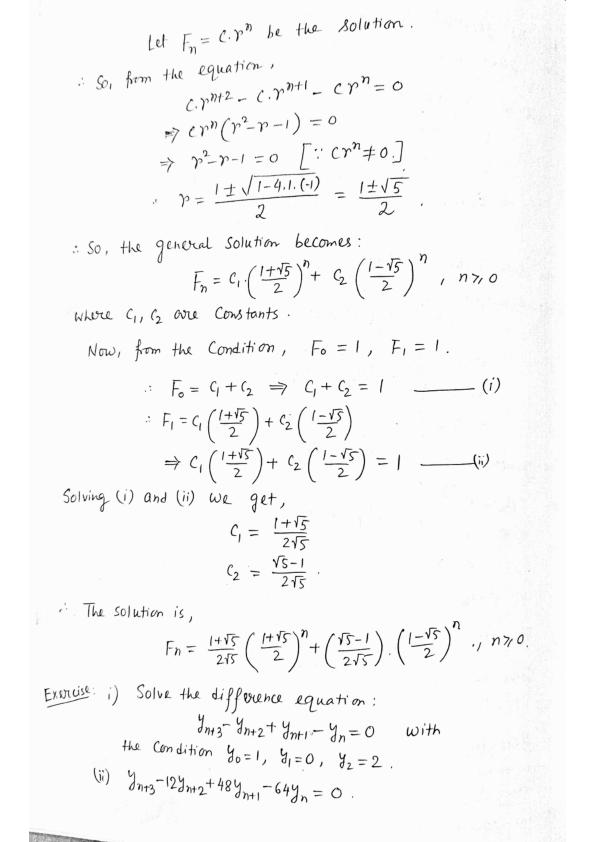 Let Fₙ = c.rⁿ be the solution.
∴ So, from the equation,
c.rⁿ⁺² - c.rⁿ⁺¹ - crⁿ = 0
⇒ crⁿ(r²-r-1) = 0
⇒ r²-r-1 = 0 [∵ crⁿ ≠ 0.]
∴ r = (1 ± √(1-4.1.(-1)))/2 = (1±√5)/2 .
∴ So, the general solution becomes:
Fₙ = C₁.((1+√5)/2)ⁿ + C₂ ((1-√5)/2)ⁿ , n≥0
where C₁, C₂ are constants.
Now, from the condition, F₀ = 1, F₁ = 1.
∴ F₀ = C₁+C₂ ⇒ C₁+C₂ = 1 ——— (i)
∴ F₁ = C₁((1+√5)/2) + C₂((1-√5)/2)
⇒ C₁((1+√5)/2) + C₂((1-√5)/2) = 1 ——— (ii)
Solving (i) and (ii) we get,
C₁ = (1+√5)/(2√5)
C₂ = (√5-1)/(2√5) .
∴ The solution is,
Fₙ = (1+√5)/(2√5) ((1+√5)/2)ⁿ + ((√5-1)/(2√5)).((1-√5)/2)ⁿ ., n≥0.
Exercise: i) Solve the difference equation:
yₙ₊₃-yₙ₊₂+yₙ₊₁-yₙ=0 with
the condition y₀=1, y₁=0, y₂=2.
(ii) yₙ₊₃-12yₙ₊₂+48yₙ₊₁-64yₙ=0.